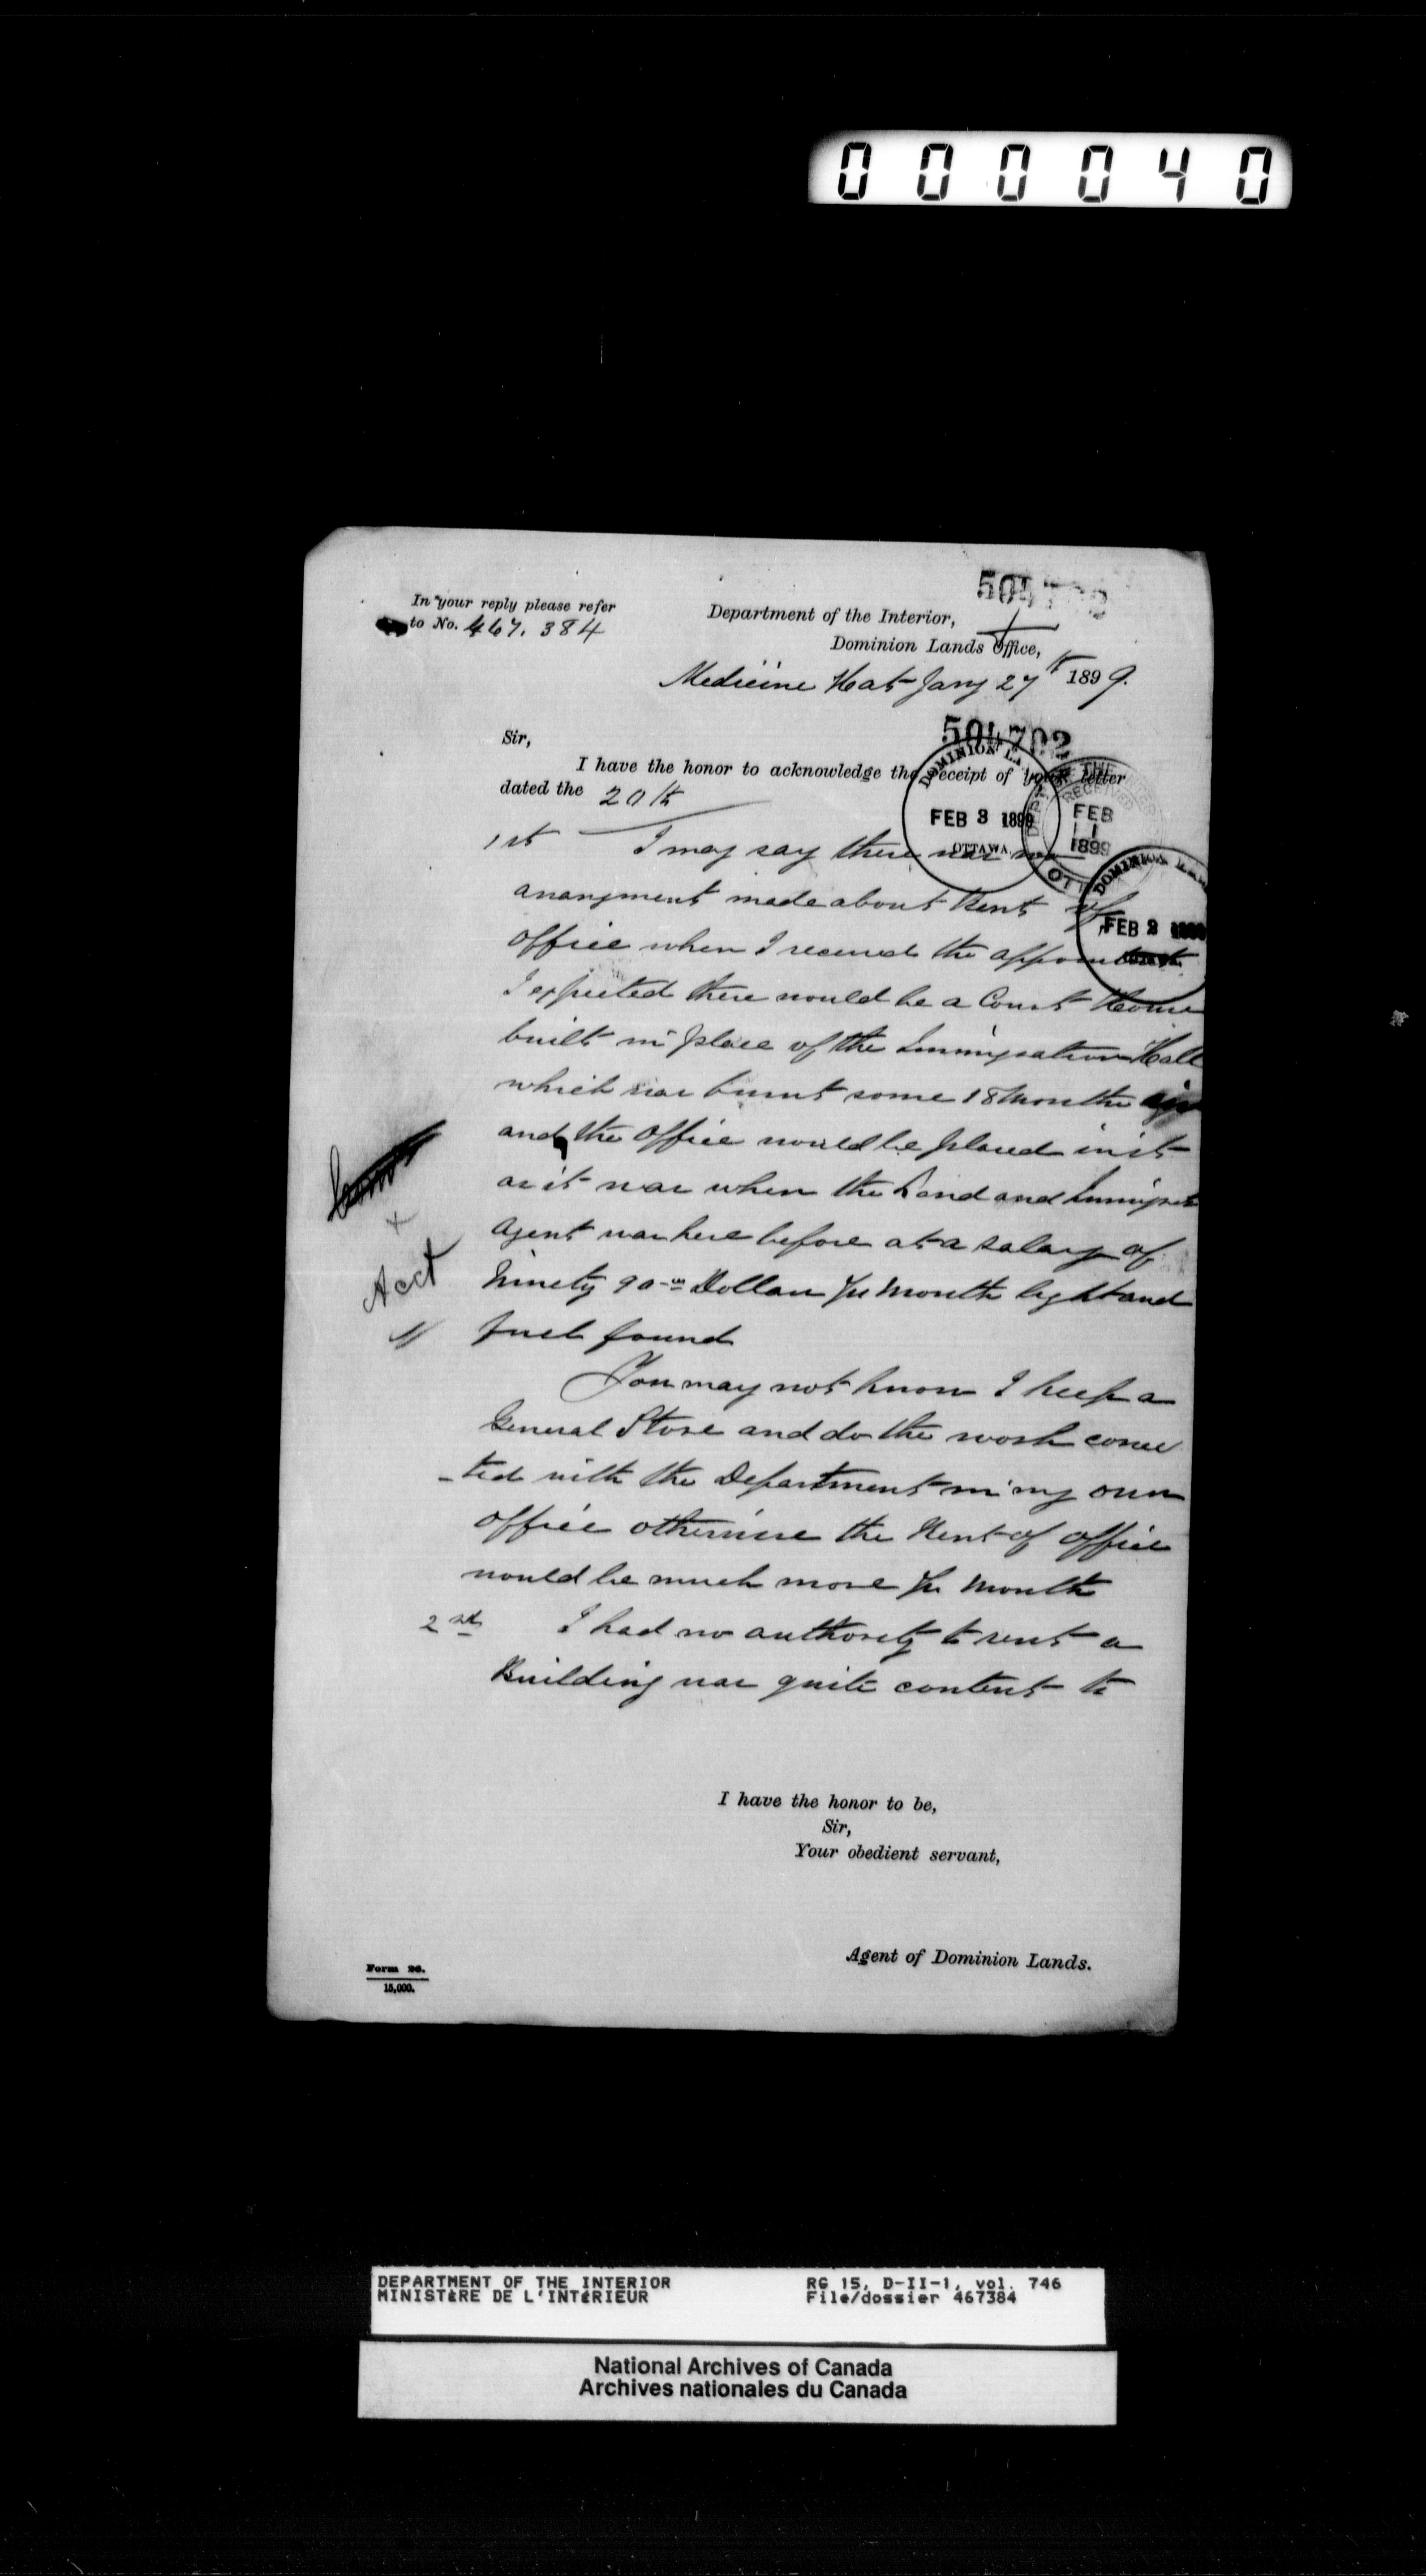 000040
504702
In your reply please refer
to No. 467.384
Department of the Interior,
Dominion Lands Office,
Medicine Hat Jany 27th 1899.
504702
Sir,
I have the honor to acknowledge the receipt of your letter
dated the 20th
DOMINION LA
FEB 3 1899
OTTAWA
RECEIVED
FEB
1
1899
OTT
DOMINION
FEB 2 1899
1st I may say there was no
arrangment made about Rent of
office when I received the appointment
I expected there would be a Court House
built in place of the Immigration Hall
which was burnt some 18 Months ago
and the office would be placed in it
as it was when the Land and Immigrat
Agent was here before at a salary of
Ninety 90 Dollars per Month light and
fuel found
You may not know I keep a
General Store and do the work conec
-ted with the Department in my own
office otherwise the Rent of office
would be much more per Month
2nd I had no authority to rent a
Building was quite content to
Acct
I have the honor to be,
Sir,
Your obedient servant,
Agent of Dominion Lands.
Form 26.
15,000.
DEPARTMENT OF THE INTERIOR
MINISTÈRE DE L'INTÉRIEUR
RG 15, D-II-1, vol. 746
File/dossier 467384
National Archives of Canada
Archives nationales du Canada